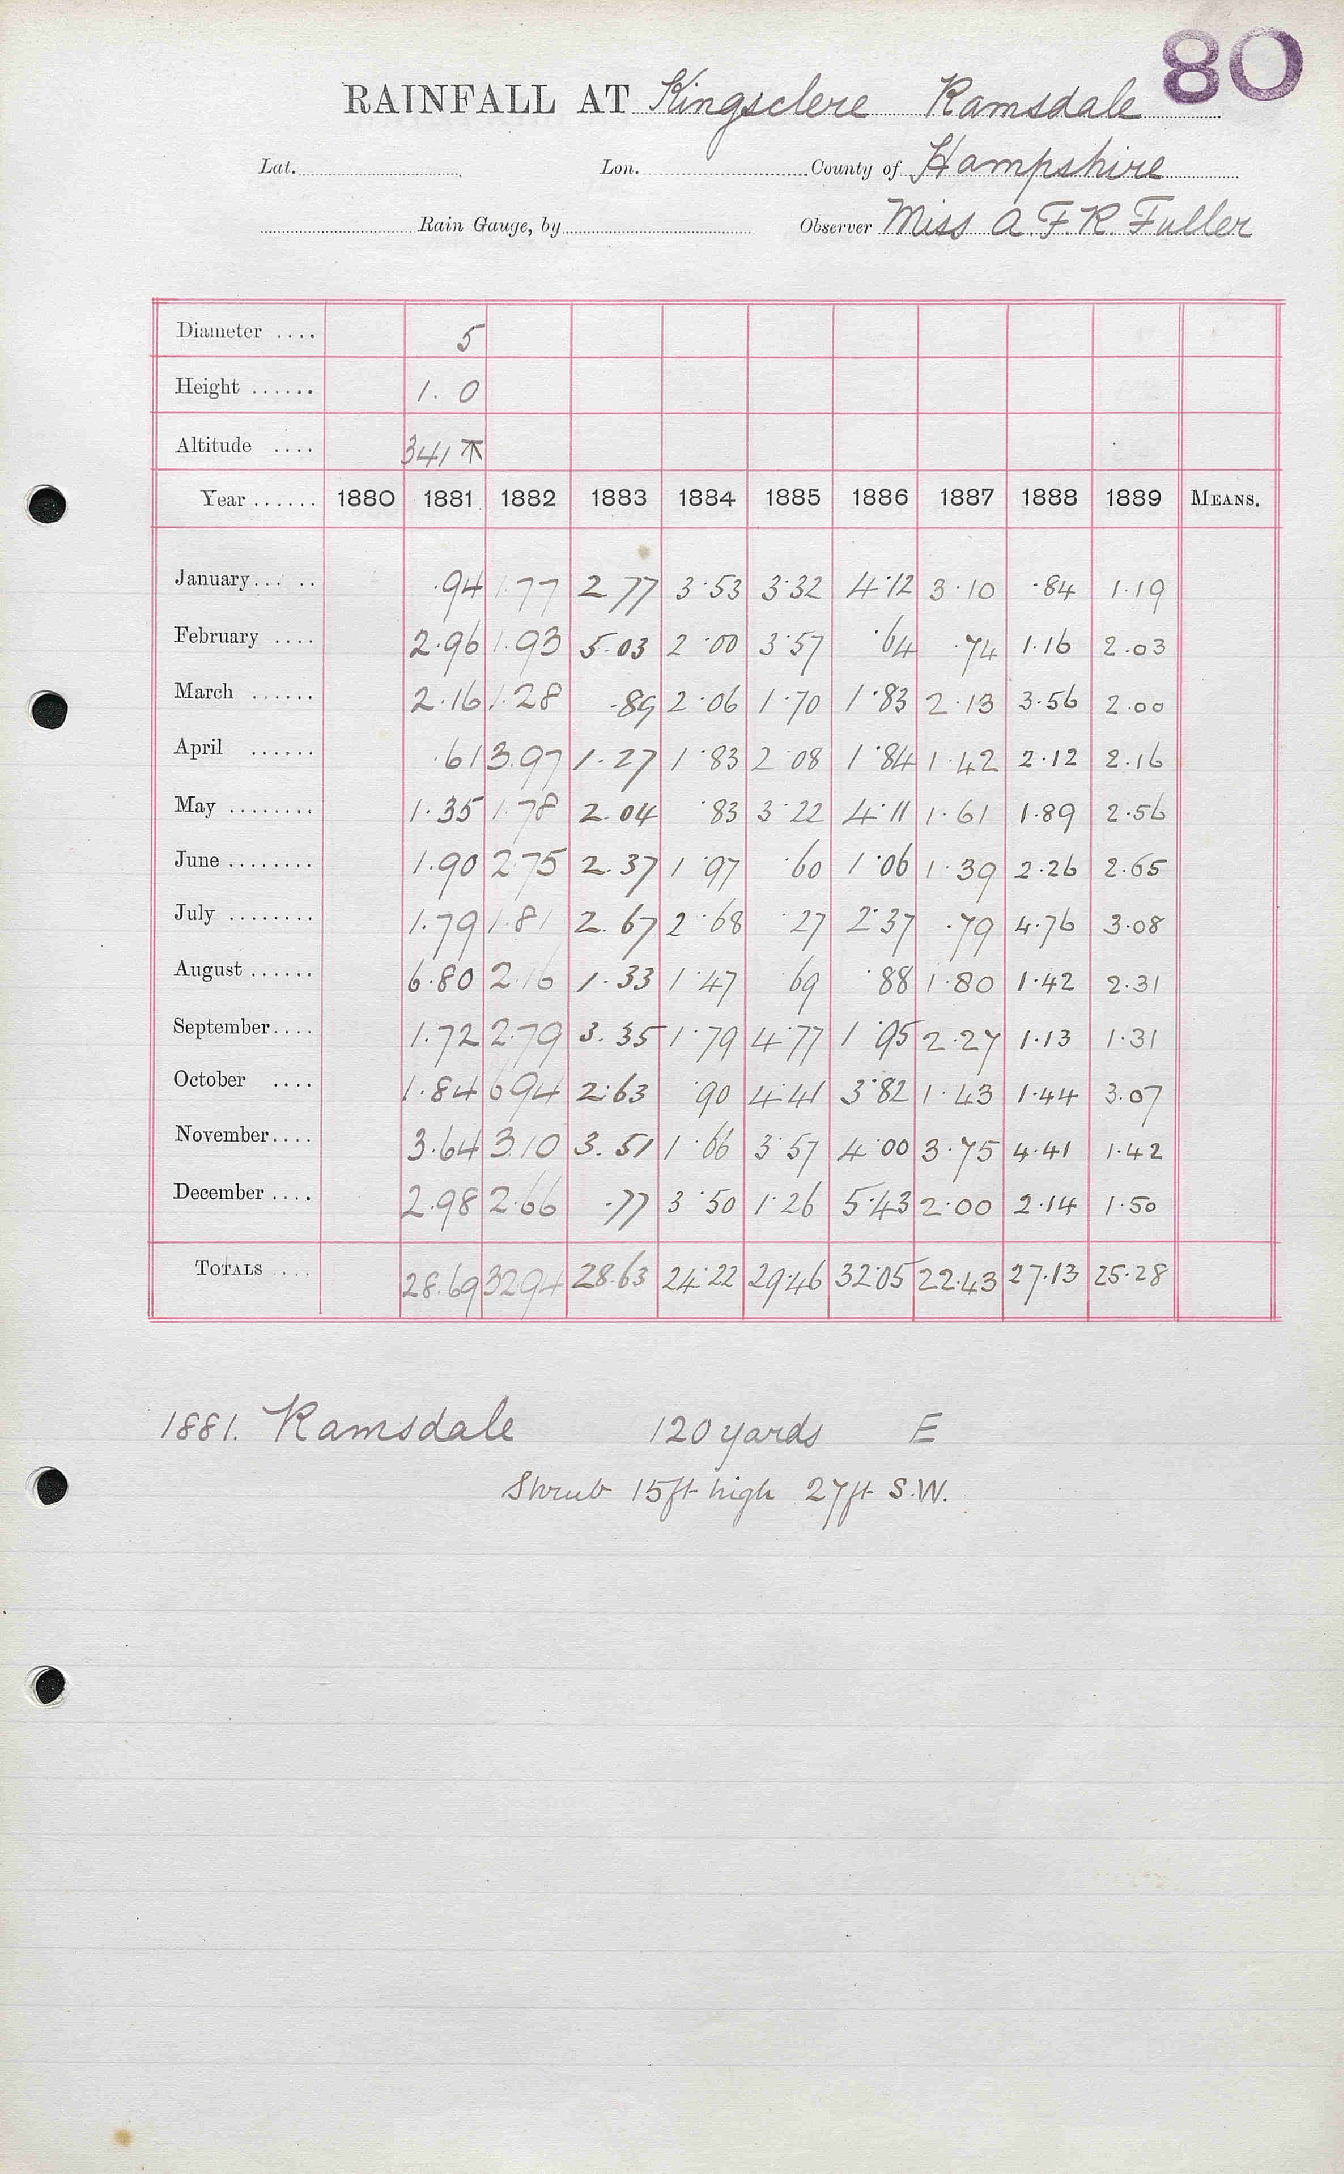 80
RAINFALL AT Kingsclere Ramsdale
Lat. Lon. County of Hampshire
Rain Gauge, by Observer Miss A. F. R. Fuller
Diameter .... 5
Height ...... 1. 0
Altitude .... 341 ⊼
Year ...... 1880 1881 1882 1883 1884 1885 1886 1887 1888 1889 MEANS.
January... .. .94 1.77 2.77 3.53 3.32 4.12 3.10 .84 1.19
February .... 2.96 1.93 5.03 2.00 3.57 .64 .74 1.16 2.03
March ...... 2.16 1.28 .89 2.06 1.70 1.83 2.13 3.56 2.00
April ...... .61 3.97 1.27 1.83 2.08 1.84 1.42 2.12 2.16
May ........ 1.35 1.78 2.04 .83 3.22 4.11 1.61 1.89 2.56
June ........ 1.90 2.75 2.37 1.97 .60 1.06 1.39 2.26 2.65
July ........ 1.79 1.81 2.67 2.68 .27 2.37 .79 4.76 3.08
August ...... 6.80 2.16 1.33 1.47 .69 .88 1.80 1.42 2.31
September.... 1.72 2.79 3.35 1.79 4.77 1.95 2.27 1.13 1.31
October .... 1.84 6.94 2.63 .90 4.41 3.82 1.43 1.44 3.07
November.... 3.64 3.10 3.51 1.66 3.57 4.00 3.75 4.41 1.42
December .... 2.98 2.66 .77 3.50 1.26 5.43 2.00 2.14 1.50
TOTALS .... 28.69 32.94 28.63 24.22 29.46 32.05 22.43 27.13 25.28
1881. Ramsdale 120 yards E
Shrub 15ft high 27ft S.W.